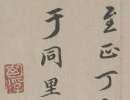 至正丁
于同里